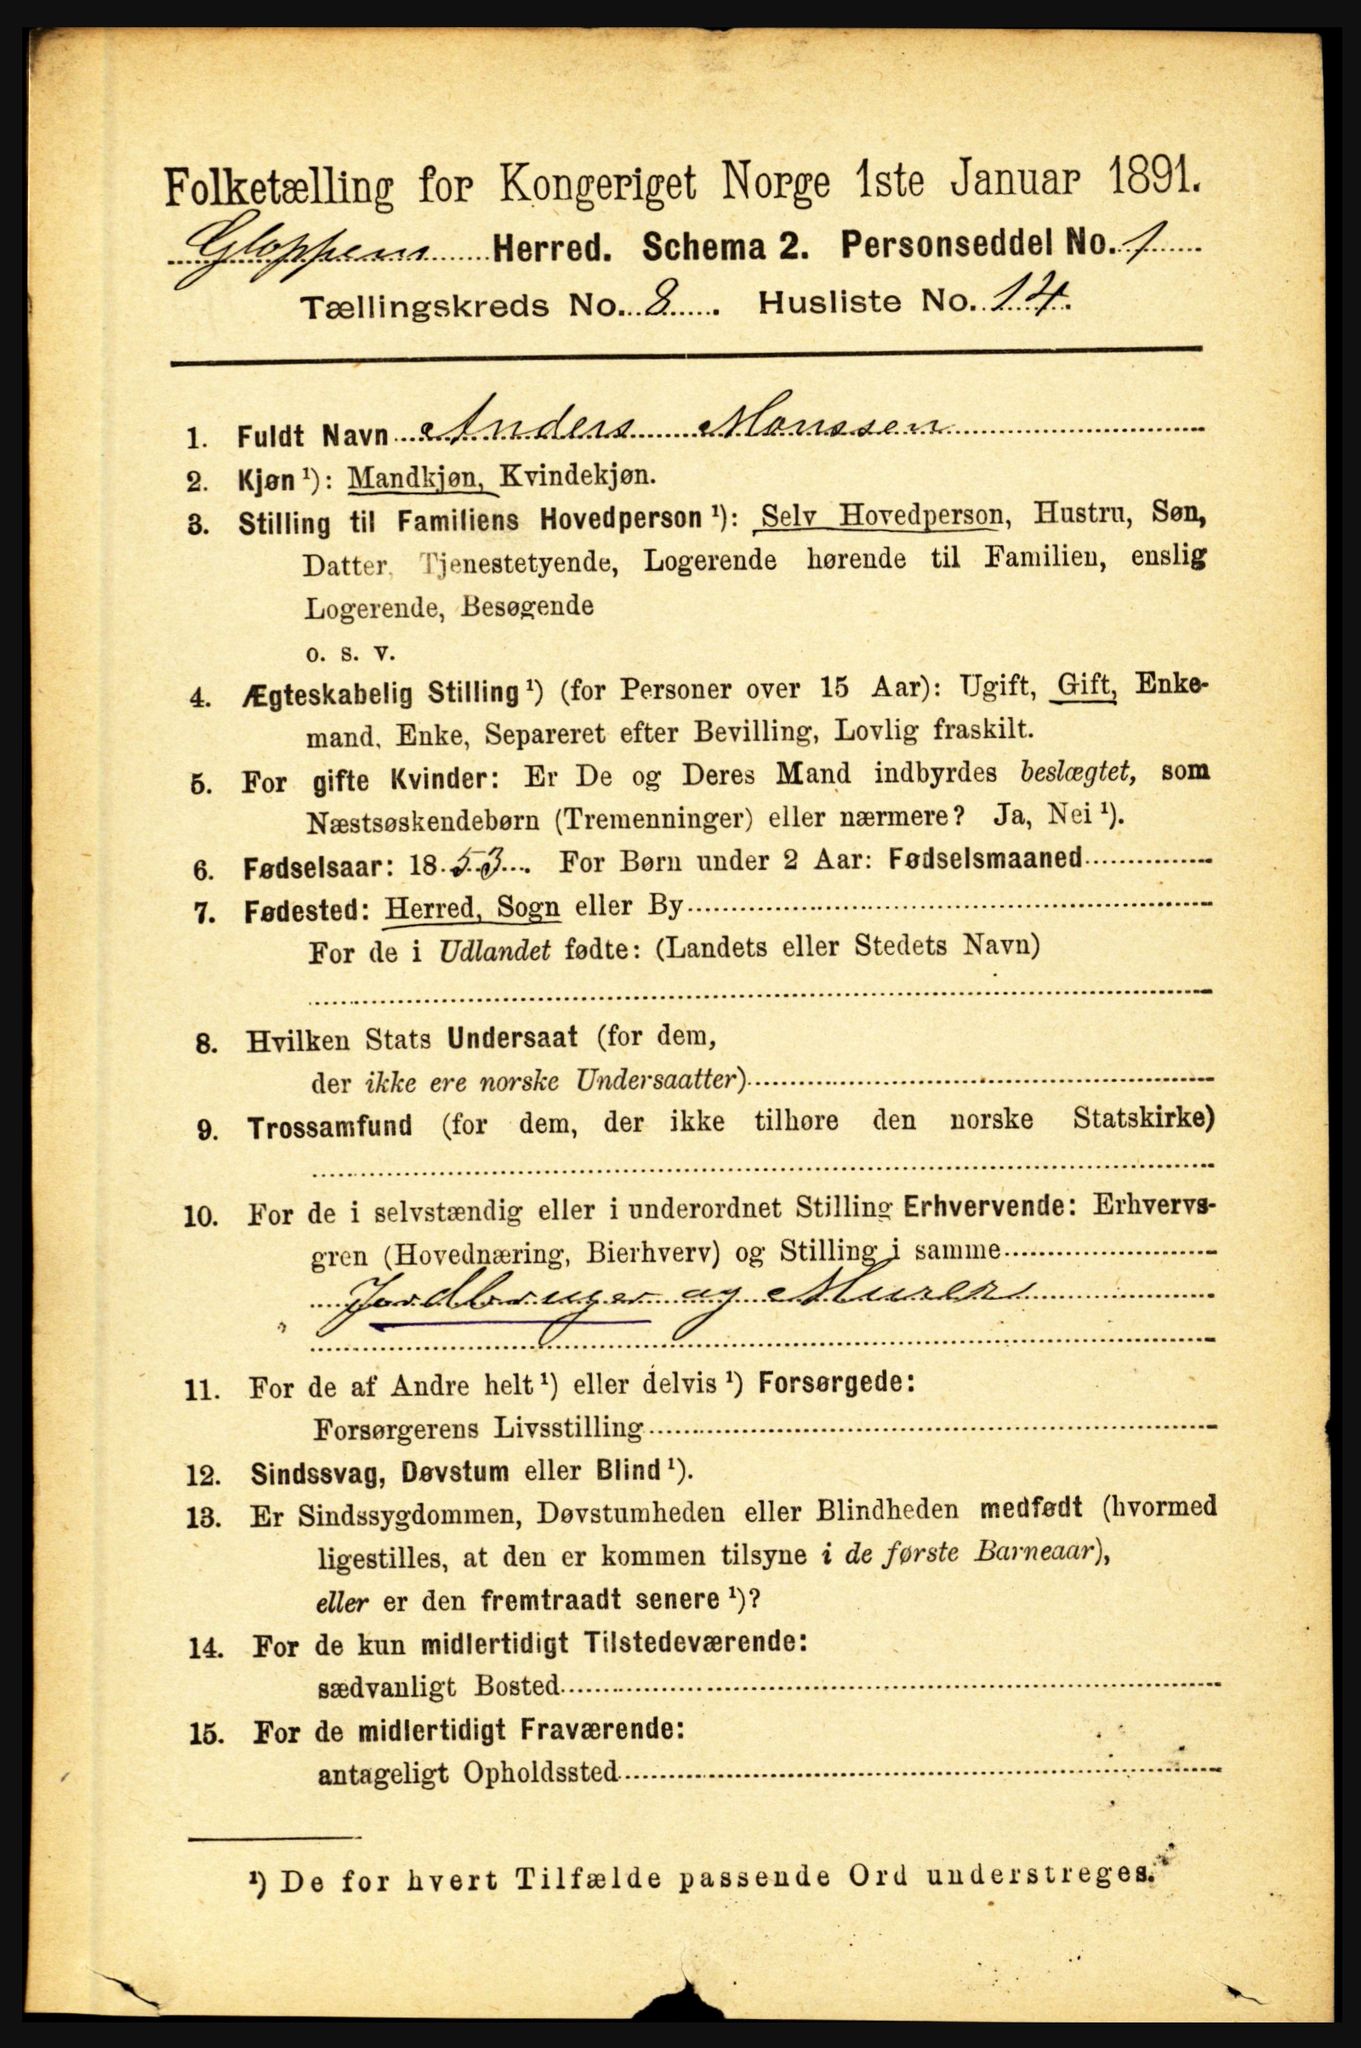 Folketælling for Kongeriget Norge 1ste Januar 1891.
Gloppen Herred. Schema 2. Personseddel No. 1
Tællingskreds No. 8. Husliste No. 14.
1. Fuldt Navn Anders Monssen
2. Kjøn ¹): Mandkjøn, Kvindekjøn.
3. Stilling til Familiens Hovedperson ¹): Selv Hovedperson, Hustru, Søn,
Datter, Tjenestetyende, Logerende hørende til Familien, enslig
Logerende, Besøgende
o. s. v.
4. Ægteskabelig Stilling ¹) (for Personer over 15 Aar): Ugift, Gift, Enke-
mand, Enke, Separeret efter Bevilling, Lovlig fraskilt.
5. For gifte Kvinder: Er De og Deres Mand indbyrdes beslægtet, som
Næstsøskendebørn (Tremenninger) eller nærmere? Ja, Nei ¹).
6. Fødselsaar: 1853. For Børn under 2 Aar: Fødselsmaaned
7. Fødested: Herred, Sogn eller By
For de i Udlandet fødte: (Landets eller Stedets Navn)
8. Hvilken Stats Undersaat (for dem,
der ikke ere norske Undersaatter)
9. Trossamfund (for dem, der ikke tilhøre den norske Statskirke)
10. For de i selvstændig eller i underordnet Stilling Erhvervende: Erhvervs-
gren (Hovednæring, Bierhverv) og Stilling i samme
Jordbruger og Murer
11. For de af Andre helt ¹) eller delvis ¹) Forsørgede:
Forsørgerens Livsstilling
12. Sindssvag, Døvstum eller Blind ¹).
13. Er Sindssygdommen, Døvstumheden eller Blindheden medfødt (hvormed
ligestilles, at den er kommen tilsyne i de første Barneaar),
eller er den fremtraadt senere ¹)?
14. For de kun midlertidigt Tilstedeværende:
sædvanligt Bosted
15. For de midlertidigt Fraværende:
antageligt Opholdssted
¹) De for hvert Tilfælde passende Ord understreges.